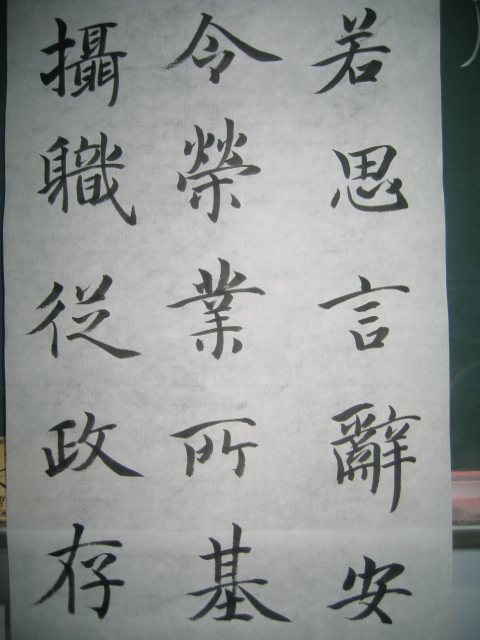 若思言辭安
令榮業所基
攝職從政存